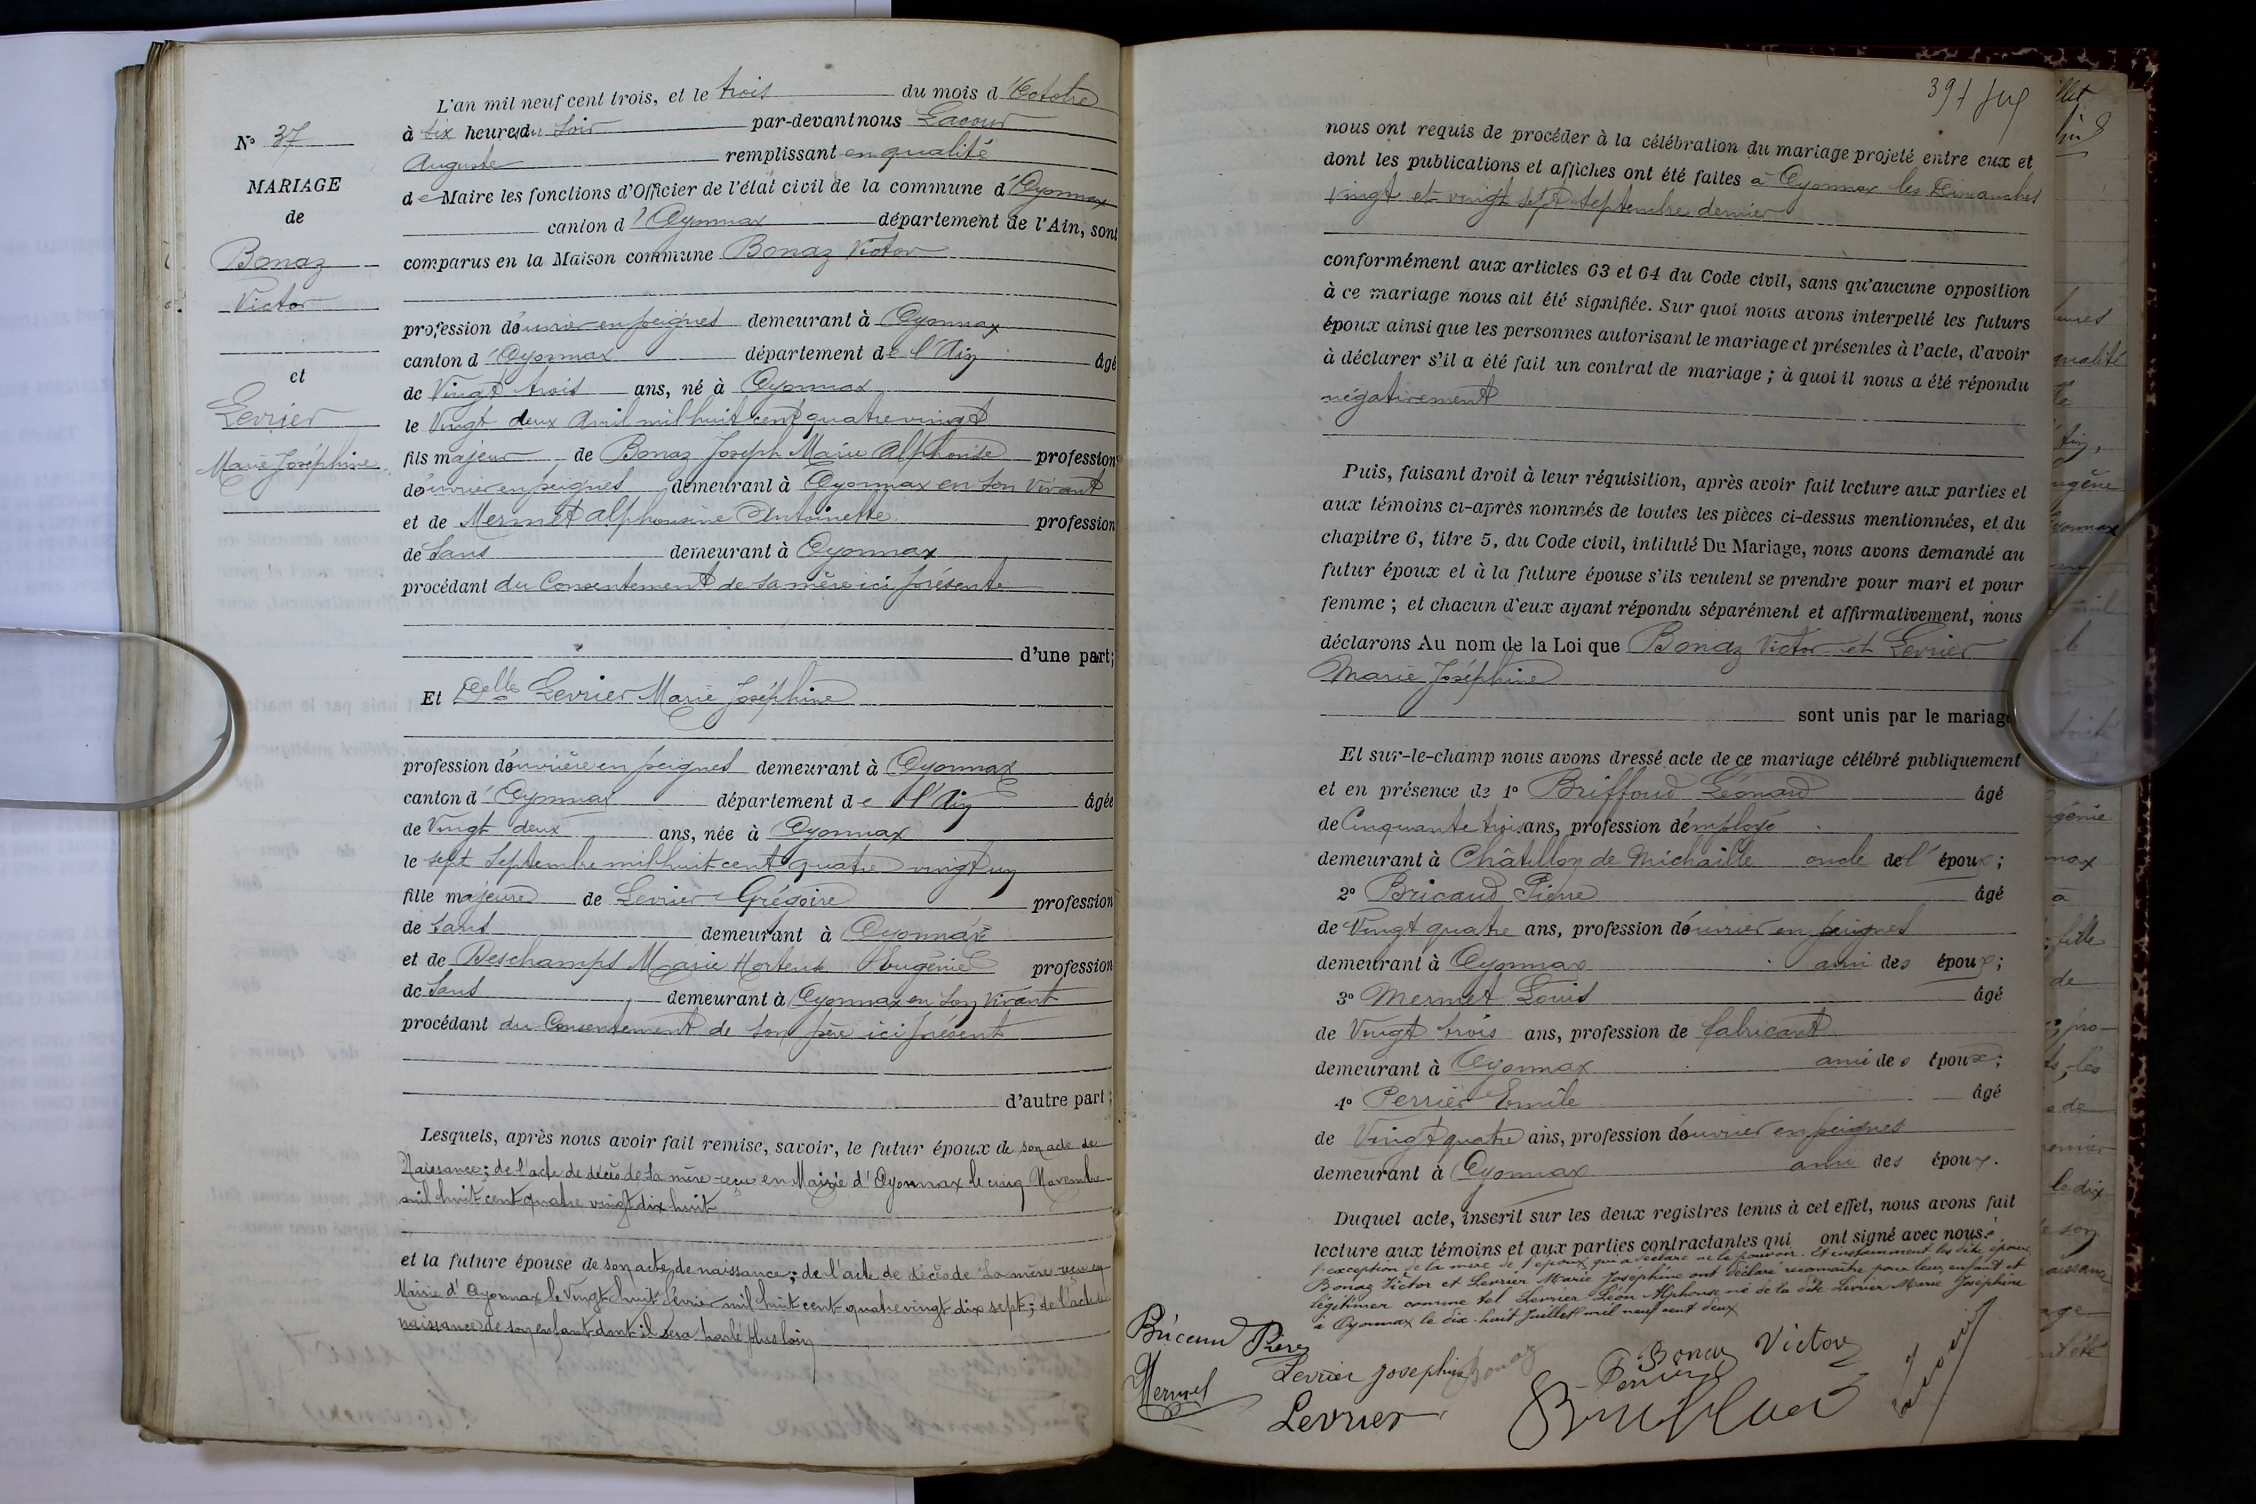 N° 37
MARIAGE
de
Bonaz
Victor
et
Levrier
Marie Joséphine
L'an mil neuf cent trois, et le trois du mois d'Octobre
à six heures du Soir par-devant nous Lacour
Auguste remplissant en qualité
de Maire les fonctions d'Officier de l'état civil de la commune d'Oyonnax
canton d'Oyonnax département de l'Ain, sont
comparus en la Maison commune Bonaz Victor
profession d'ouvrier en peignes demeurant à Oyonnax
canton d'Oyonnax département de l'Ain âgé
de Vingt trois ans, né à Oyonnax
le Vingt deux Avril mil huit cent quatre vingt
fils majeur de Bonaz Joseph Marie Alphonse profession
d'ouvrier en peignes demeurant à Oyonnax en son Vivant
et de Mermet Alphonsine Antoinette profession
de Sans demeurant à Oyonnax
procédant du Consentement de sa mère ici présente
d'une part;
Et Delle Levrier Marie Joséphine
profession d'ouvrière en peignes demeurant à Oyonnax
canton d'Oyonnax département de l'Ain âgée
de Vingt deux ans, née à Oyonnax
le sept Septembre mil huit cent quatre vingt un
fille majeure de Levrier Grégoire profession
de Sans demeurant à Oyonnax
et de Deschamps Marie Hortense Eugénie profession
de Sans demeurant à Oyonnax en son Vivant
procédant du Consentement de son père ici présent
d'autre part;
Lesquels, après nous avoir fait remise, savoir, le futur époux de son acte de
Naissance; de l'acte de décès de sa mère reçu en Mairie d'Oyonnax le cinq Novembre
mil huit cent quatre vingt dix huit
et la future épouse de son acte de naissance; de l'acte de décès de sa mère reçu en
Mairie d'Oyonnax le Vingt huit février mil huit cent quatre vingt dix sept; de l'acte de
naissance de son enfant dont il sera parlé plus loin
39
nous ont requis de procéder à la célébration du mariage projeté entre eux et
dont les publications et affiches ont été faites à Oyonnax les Dimanches
Vingt et vingt sept Septembre dernier
conformément aux articles 63 et 64 du Code civil, sans qu'aucune opposition
à ce mariage nous ait été signifiée. Sur quoi nous avons interpellé les futurs
époux ainsi que les personnes autorisant le mariage et présentes à l'acte, d'avoir
à déclarer s'il a été fait un contrat de mariage; à quoi il nous a été répondu
négativement
Puis, faisant droit à leur réquisition, après avoir fait lecture aux parties et
aux témoins ci-après nommés de toutes les pièces ci-dessus mentionnées, et du
chapitre 6, titre 5, du Code civil, intitulé Du Mariage, nous avons demandé au
futur époux et à la future épouse s'ils veulent se prendre pour mari et pour
femme; et chacun d'eux ayant répondu séparément et affirmativement, nous
déclarons Au nom de la Loi que Bonaz Victor et Levrier
Marie Joséphine
sont unis par le mariage
Et sur-le-champ nous avons dressé acte de ce mariage célébré publiquement
et en présence de 1° Briffoud Léonard âgé
de Cinquante trois ans, profession d'employé
demeurant à Châtillon de Michaille oncle de l'époux;
2° Bricaud Pierre âgé
de Vingt quatre ans, profession d'ouvrier en peignes
demeurant à Oyonnax ami des époux;
3° Mermet Louis âgé
de Vingt trois ans, profession de fabricant
demeurant à Oyonnax ami des époux;
4° Perrier Emile âgé
de Vingt quatre ans, profession d'ouvrier en peignes
demeurant à Oyonnax ami des époux.
Duquel acte, inscrit sur les deux registres tenus à cet effet, nous avons fait
lecture aux témoins et aux parties contractantes qui ont signé avec nous à
l'exception de la mère de l'époux qui a déclaré ne le pouvoir. Et instamment les dits époux
Bonaz Victor et Levrier Marie Joséphine ont déclaré reconnaître pour leur enfant et
légitimer comme tel Levrier Léon Alphonse né de la dite Levrier Marie Joséphine
à Oyonnax le dix-huit Juillet mil neuf cent deux
Bricaud Pierre
Levrier Josephine
Bonaz
Bonaz Victor
Perrier
Mermet
Levrier
Briffoud